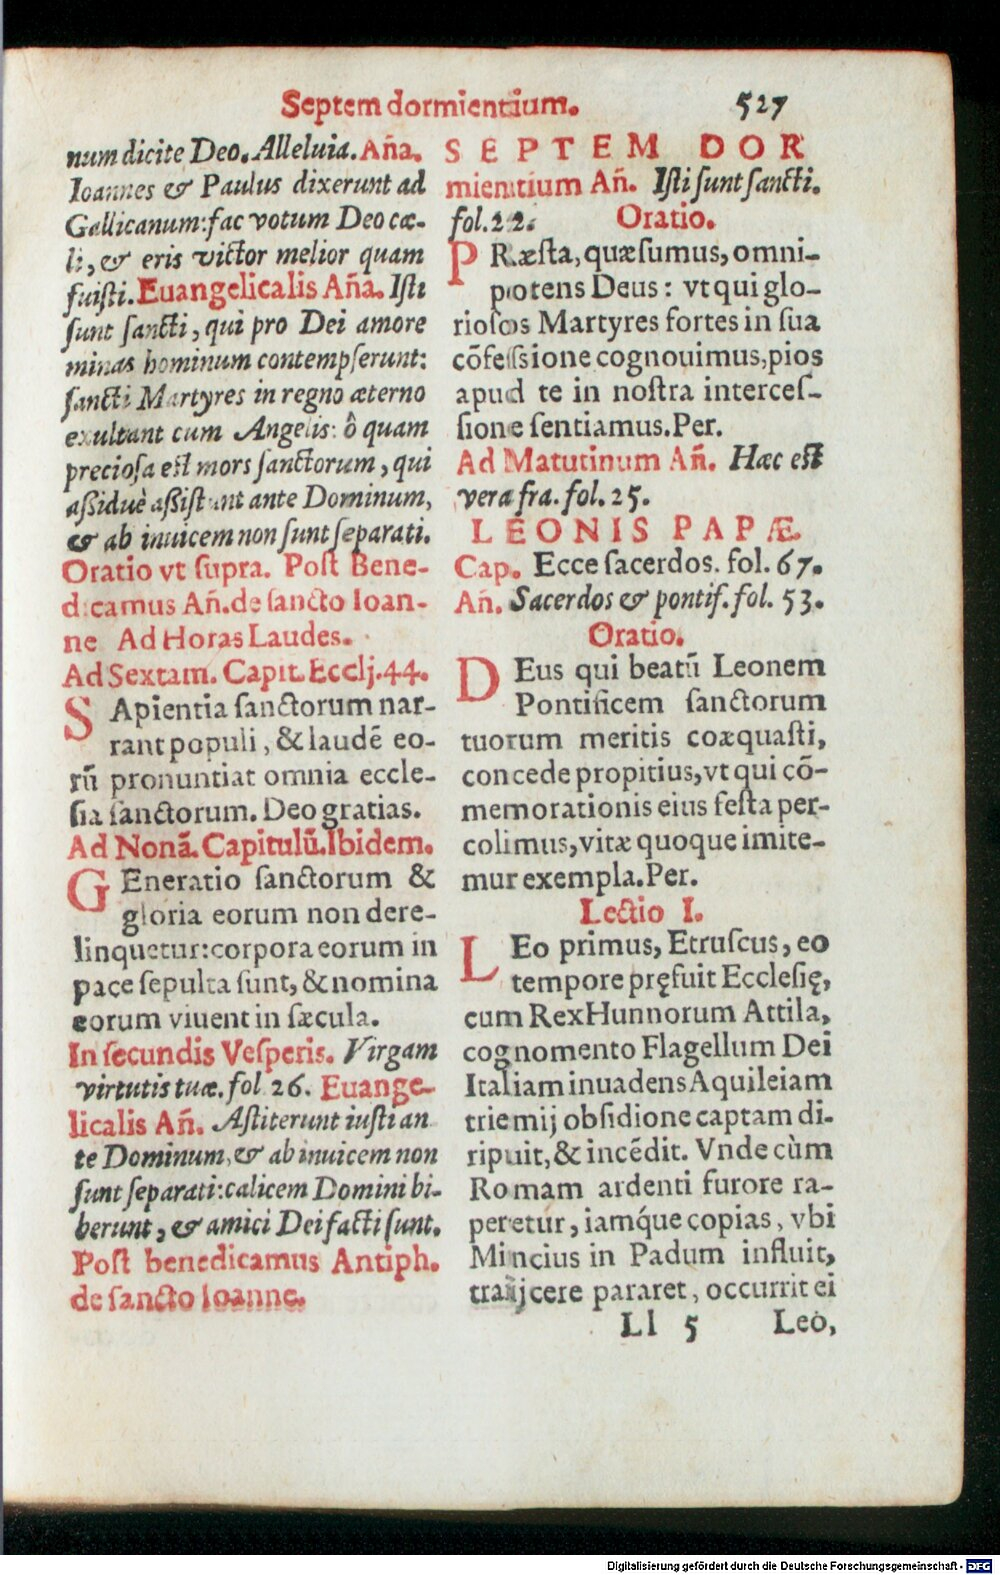 Septem dormientium. 527
num dicite Deo. Alleluia. Aña.
Ioannes & Paulus dixerunt ad
Gallicanum: fac votum Deo cæ-
li, & eris victor melior quam
fuisti. Euangelicalis Aña. Isti
sunt sancti, qui pro Dei amore
minas hominum contempserunt:
sancti Martyres in regno æterno
exultant cum Angelis: ô quam
preciosa est mors sanctorum, qui
assiduè assistunt ante Dominum,
& ab inuicem non sunt separati.
Oratio vt supra. Post Bene-
dicamus Añ. de sancto Ioan-
ne Ad Horas Laudes.
Ad Sextam. Capit. Ecclj. 44.
SApientia sanctorum nar-
rant populi, & laudē eo-
rū pronuntiat omnia eccle-
sia sanctorum. Deo gratias.
Ad Nonā. Capitulū. Ibidem.
GEneratio sanctorum &
gloria eorum non dere-
linquetur: corpora eorum in
pace sepulta sunt, & nomina
eorum viuent in sæcula.
In secundis Vesperis. Virgam
virtutis tuæ. fol 26. Euange-
licalis Añ. Astiterunt iusti an
te Dominum, & ab inuicem non
sunt separati: calicem Domini bi-
berunt, & amici Dei facti sunt.
Post benedicamus Antiph.
de sancto Ioanne.
SEPTEM DOR
mientium Añ. Isti sunt sancti.
fol. 22. Oratio.
PRæsta, quæsumus, omni-
potens Deus: vt qui glo-
riosos Martyres fortes in sua
cōfessione cognouimus, pios
apud te in nostra interces-
sione sentiamus. Per.
Ad Matutinum Añ. Hæc est
vera fra. fol. 25.
LEONIS PAPÆ.
Cap. Ecce sacerdos. fol. 67.
Añ. Sacerdos & pontif. fol. 53.
Oratio.
DEus qui beatū Leonem
Pontificem sanctorum
tuorum meritis coæquasti,
concede propitius, vt qui cō-
memorationis eius festa per-
colimus, vitæ quoque imite-
mur exempla. Per.
Lectio I.
LEo primus, Etruscus, eo
tempore pręfuit Ecclesię,
cum Rex Hunnorum Attila,
cognomento Flagellum Dei
Italiam inuadens Aquileiam
triemij obsidione captam di-
ripuit, & incēdit. Vnde cùm
Romam ardenti furore ra-
peretur, iamq́ue copias, vbi
Mincius in Padum influit,
traijcere pararet, occurrit ei
Ll 5 Leo,
Digitalisierung gefördert durch die Deutsche Forschungsgemeinschaft - DFG